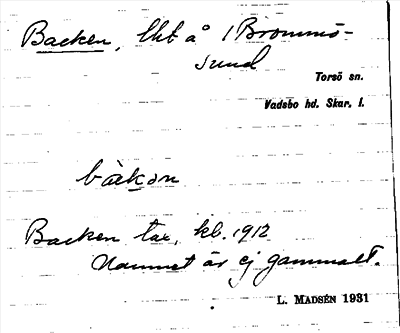 Backen, lht å 1 Brommö-
sund
Torsö sn.
Vadsbo hd. Skar. l.
bàckən
Backen tax. kb. 1912
Namnet är ej gammalt.
L. MADSÉN 1931